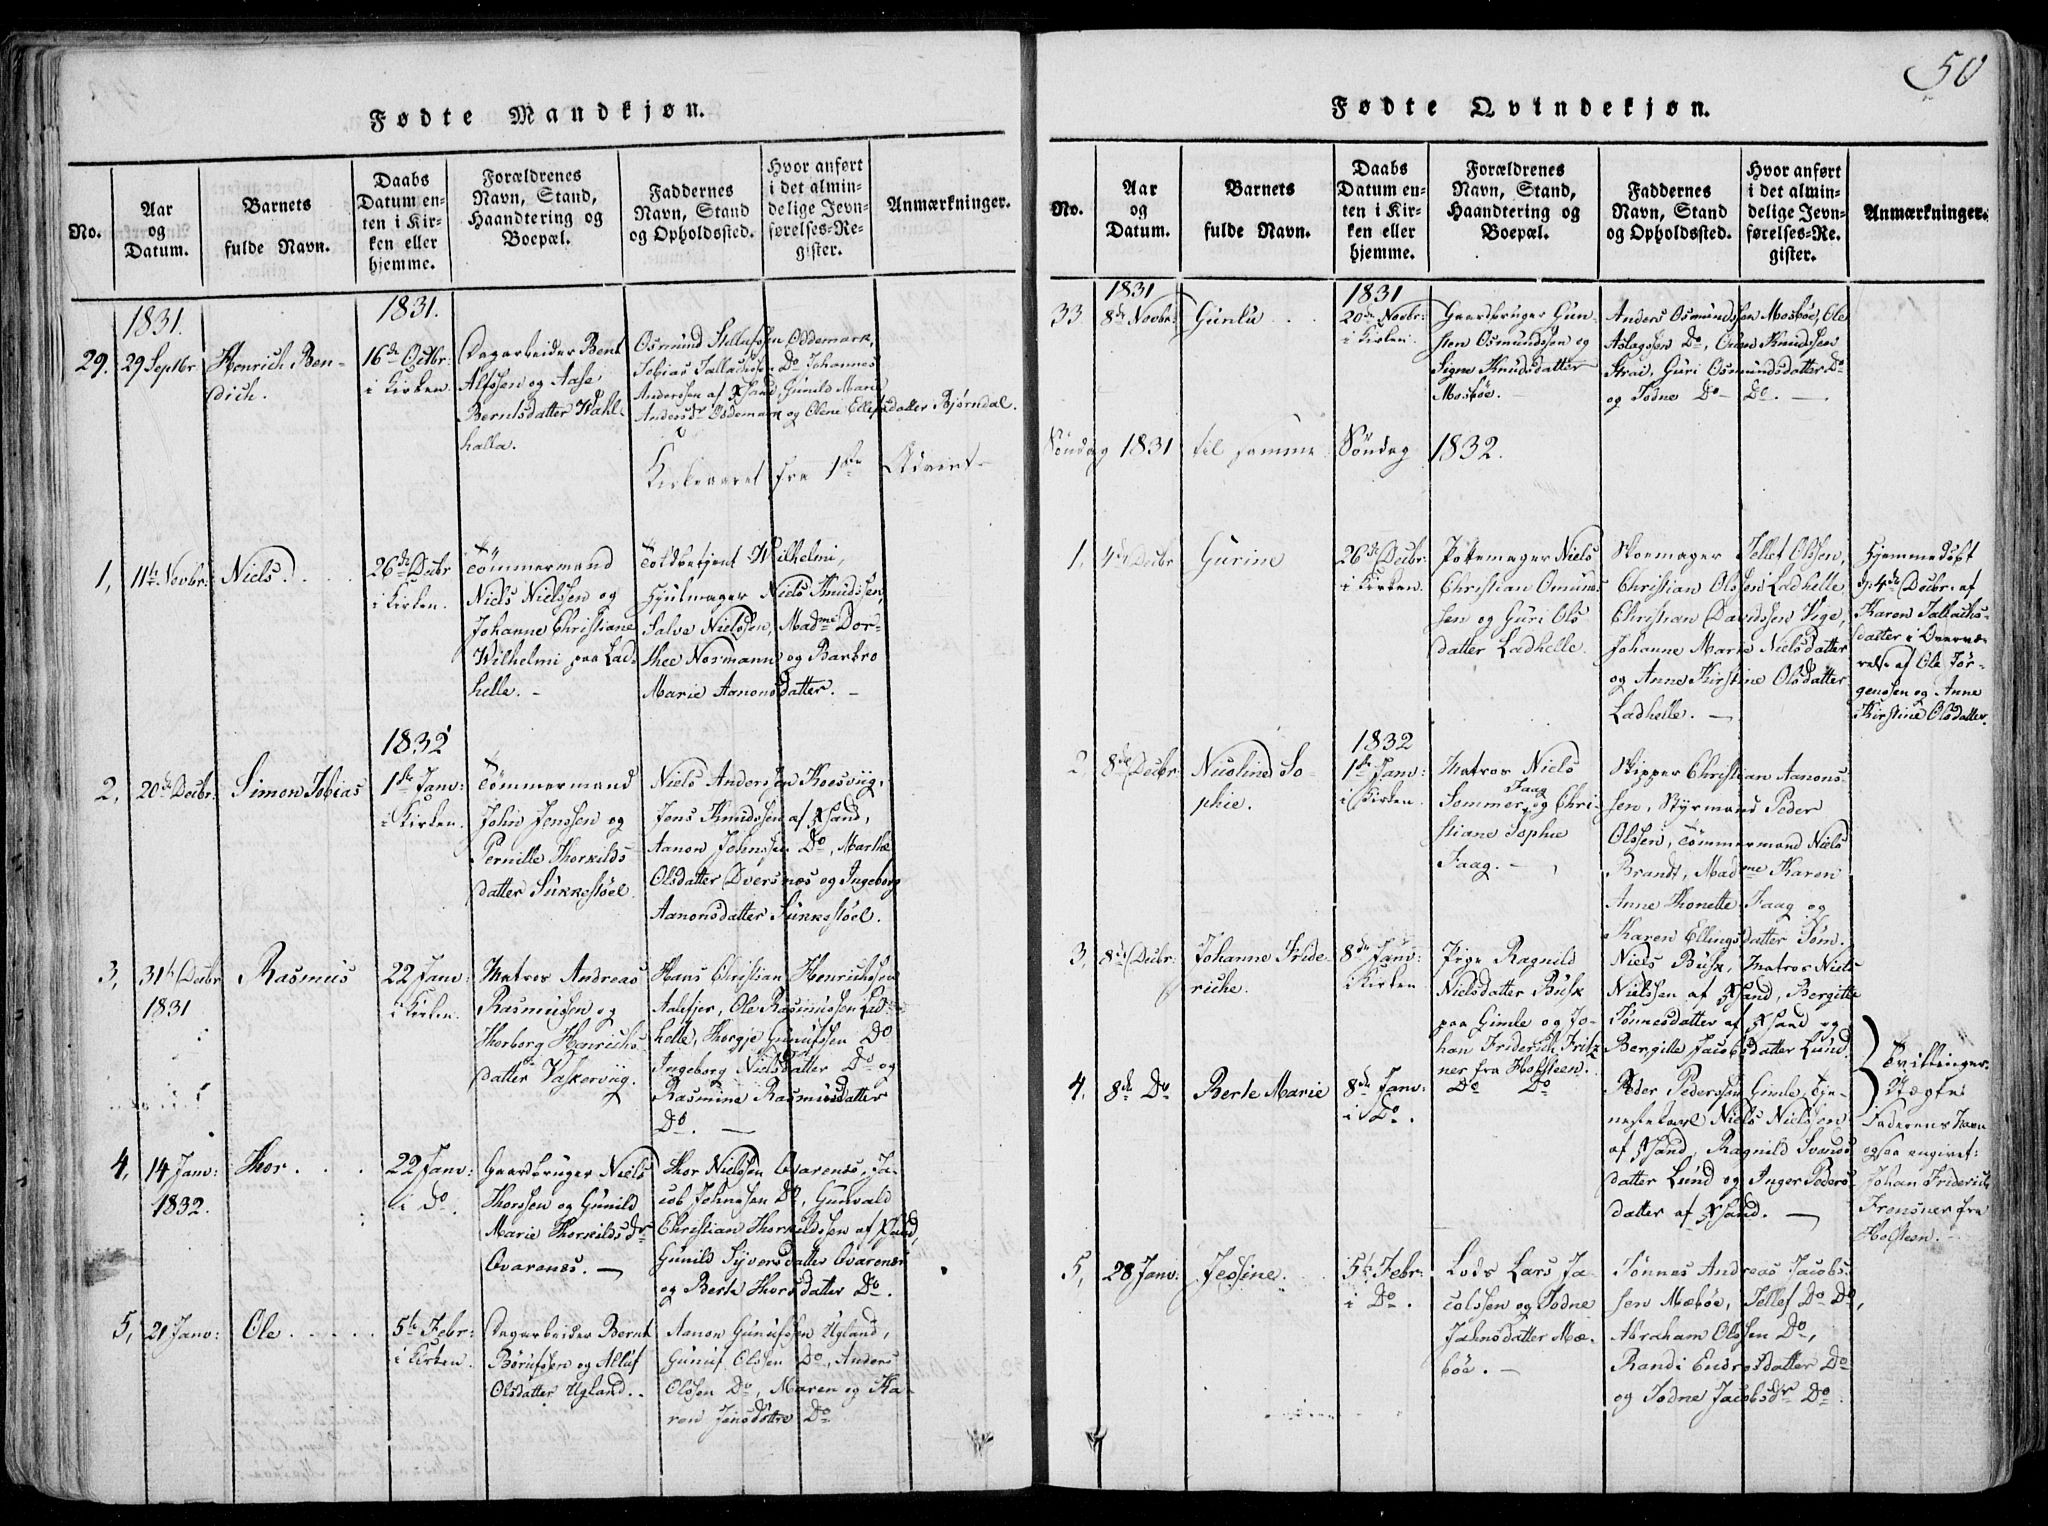 50
Fødte Mandkjøn.
No.
Aar
og
Datum.
Barnets
fulde Navn.
Daabs
Datum en-
ten i Kir-
ken eller
hjemme.
Forældrenes
Navn, Stand,
Haandtering og
Boepæl.
Faddernes
Navn, Stand
og Opholdssted.
Hvor anført
i det almin-
delige Jevn-
førelses-Re-
gister.
Anmærkninger.
1831.
29.
29 Septbr
Henrich Ben-
dich.
1831.
16de Octbr:
i Kirken
Dagarbeider Bent
Alfssen og Aase
Berntsdatter Wahl-
halla.
Osmund Oddemark,
Tobias Do Johannes
Anderssen af Xsand, Gunild Marie
Andersdr Oddemark og Oleni Ellefsdatter Bjørndal.
Kirkeaaret fra 1ste Advent-
1,
11te Novbr:
Niels.
26de Decbr
i Kirken.
Tömmermand
Niels Nielssen og
Johanne Christiane
Wilhelmi paa Lad-
helle. -
Toldbetjent Wilhelmi,
Hjulmager Niels Knudssen,
Salve Nielssen, Madme Dor-
thee Normann og Barbro
Marie Aanonsdatter. -
2,
20de Decbr:
Simon Tobias
1832
1ste Janv:
i Kirken.
Tömmermand
John Jenssen og
Pernille Thorkilds-
datter Sukkestöel.
Niels Anderssen Kossviig,
Jens Knudssen af Xsand,
Aanon Johnssen Do, Marthe
Olsdatter Dversnæs og Ingeborg
Aanonsdatter Sukkestöel.
3,
31te Decbr
1831
Rasmus
22 Janv:
i Kirken.
Matros Andreas
Rasmussen og
Thorborg Henrichs-
datter Vaskeviig.
Hans Christian Henrichssen
Aalefjer, Ole Rasmussen Lad-
helle, Thorgje Gunufssen Do
Ingeborg Nielsdatter Do og
Rasmine Rasmusdatter
Do. -
4,
14 Janv:
1832.
Thor.
22 Janv:
i Do.
Gaardbruger Niels
Thorssen og Gunild
Marie Thorkildsdr
Qvarenes. -
Thor Nielssen Qvarenes, Ja-
cob Johnssen Do, Gunvald
Christian Thorkildssen af Xsand,
Gunild Syversdatter Qvarenes
og Berte Thorsdatter Do.
5,
21 Janv:
Ole
5te Febr:
i Kirken.
Dagarbeider Bernt
Börufssen og Alluf
Olsdatter Ugland.
Aanon Gunufssen Ugland,
Gunuf Olssen Do, Anders
Olssen Do, Maren og Ka-
ren Jensdöttre Do
Fødte Qvindekjøn.
No.
Aar
og
Datum.
Barnets
fulde Navn.
Daabs
Datum en-
ten i Kir-
ken eller
hjemme.
Forældrenes
Navn, Stand,
Haandtering og
Boepæl.
Faddernes
Navn, Stand
og Opholdssted.
Hvor anført
i det almin-
delige Jevn-
førelses-Re-
gister.
Anmærkninger.
33
1831
8de Novbr:
Gunlu
1831
20de Novbr:
i Kirken.
Gaardbruger Gun-
sten Osmundssen og
Signe Knudsdatter
Mosböe.
Anders Osmundssen Mosböe, Ole
Aslagssen Do, Omun Knudssen
Strai, Guri Osmundsdatter Do
og Todne Do Do. -
Söndag 1831 til samme Söndag 1832.
1,
4de Decbr
Gurine
26de Decbr:
i Kirken.
Pottemager Niels
Christian Omund-
sen og Guri Ols
datter Ladhelle.
Skoemager Tellef Olssen,
Christian Olssen Ladhelle,
Christian Davidssen Vige,
Johanne Marie Nielsdatter
og Anne Kirstine Olsdatter
Ladhelle. -
Hjemmedöbt
d. 4de Decbr. af
Karen Tallaks-
datter i Overvæ-
relse af Ole Jör-
genssen og Anne
Kirstine Olsdatter.
2,
8de Decbr.
Nicoline So-
phie.
1832
1ste Janv:
i Kirken.
Matros Niels
Sommer Faag og Chri-
stiane Sophie
Faag. -
Skipper Christian Aanons-
sen, Styrmand Peder
Olssen, Tömmermand Niels
Brandt, Madme Karen
Anne Thonette Faag og
Karen Ellingsdatter Töm.
3,
8de Decbr:
Johanne Fride-
riche.
8de Janv:
i Kirken
Pige Ragnild
Nielsdatter Busk
paa Gimle og Jo-
han Friderich Fritz
ner fra Holsteen.
Niels Busk, Matros Niels
Nielssen af Xsand, Bergitte
Tönnesdatter af Xsand og
Bergitte Jacobsdatter Lund.
4,
8de Do
Berte Marie
8de Janv:
i Do.
Do Do
Peder Pederssen Gimle, Tje-
nestekarl Niels Nielssen
af Xsand, Ragnild Svends
datter Lund og Inger Peders
datter af Xsand. -
Tvillinger
Uægte
Faderens Navn
ogsaa angivet:
Johan Friderich
Fronsner fra
Holsteen. -
5,
28 Janv:
Jessine.
5te Febr:
i Do.
Lods Lars Ja-
cobssen og Todne
Jahnsdatter Mæ-
böe. -
Tönnes Andreas Jacobs-
sen Mæböe, Tellef Do Do,
Abraham Olssen Do,
Randi Endresdatter Do
og Todne Jacobsdr Do.